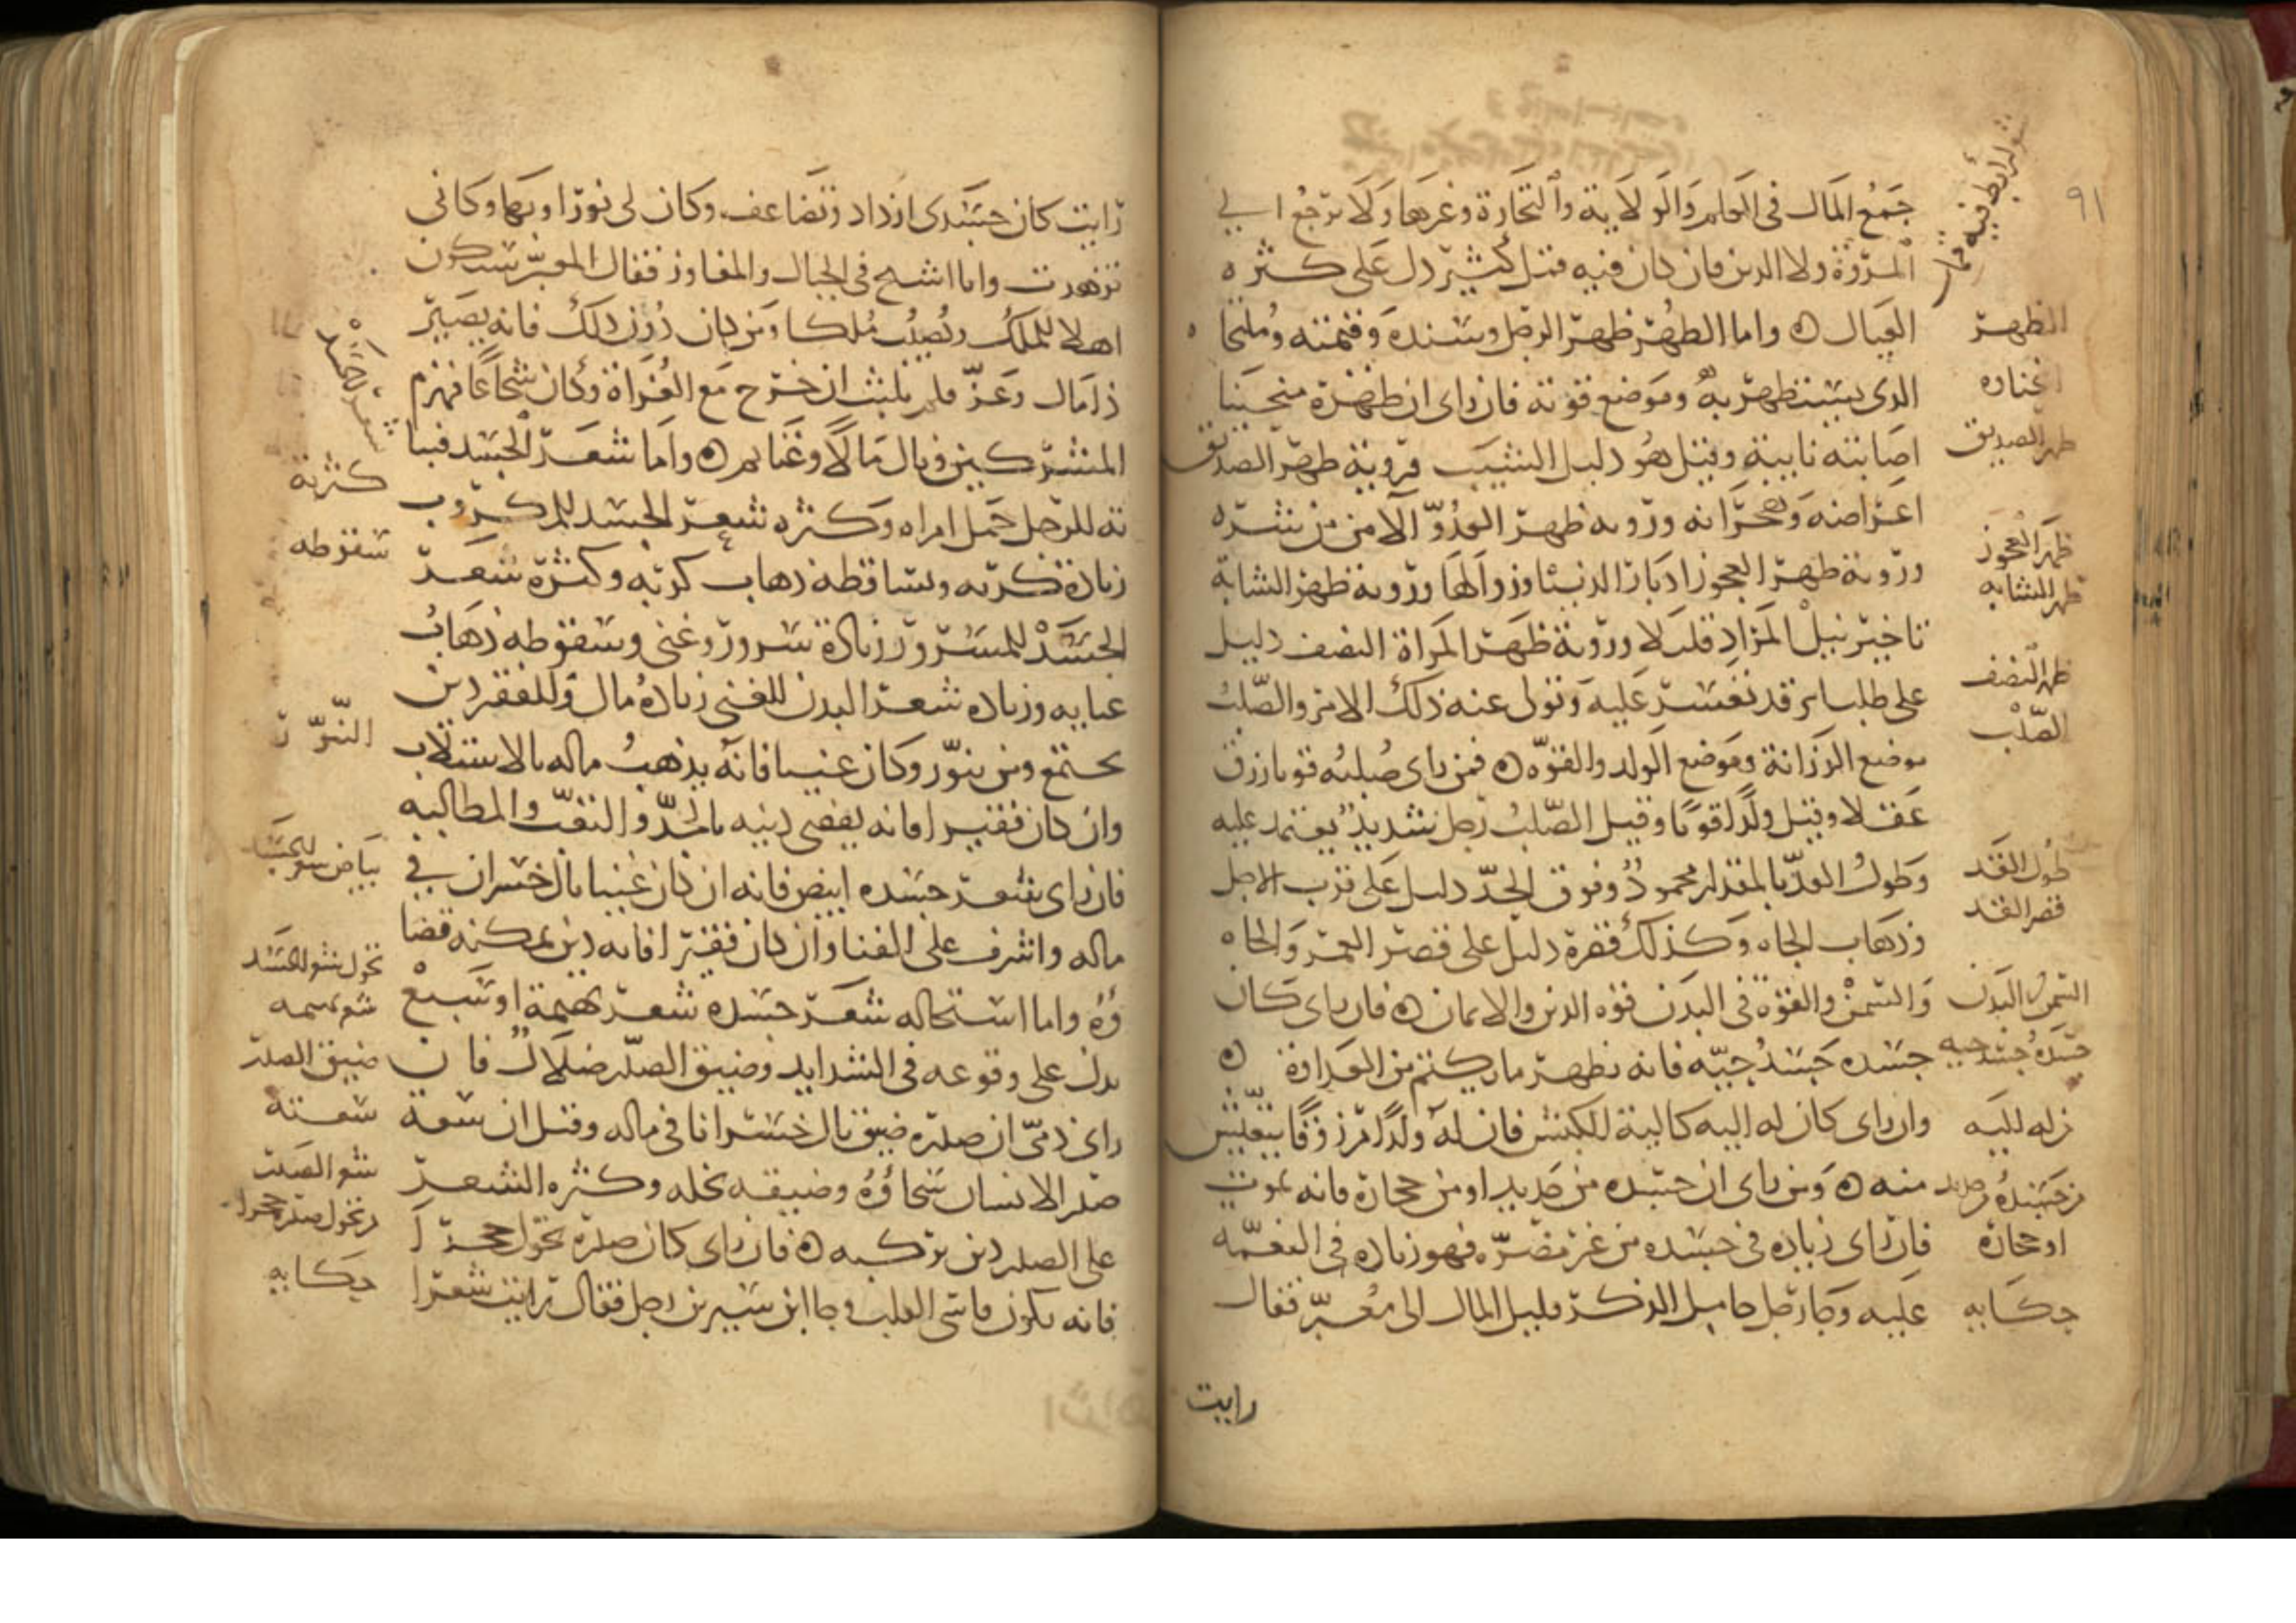 ٩١
جمع المال في العلم والولاية والتجارة وغيرها ولا يرجع الي
المروة ولا الدين فان كان فيه قمل كثير دل على كثره
العيال واما الظهر ظهر الرجل وسنده وقيمته وملتجا
الذي يستظهر به وموضع قوته فان راى ان ظهره منحنيا
اصابته نايبة وقيل هو دليل الشيب وروية ظهر الصديق
اعراضه وهجرانه وروية ظهر العدو الامن من شره
وروية ظهر العجوز ادبار الدنيا وزوالها وروية ظهر الشابة
تاخير نيل المراد قليلا وروية ظهر المراة النصف دليل
على طلب امر قد تعسر عليه وتولى عنه ذلك الامر والصلب
موضع الرزانة وموضع الولد والقوه فمن راى صلبه قويا رزق
عقلا وقيل ولدا قويا وقيل الصلب رجل شديد يعتمد عليه
وطول القد بالمقدار محمود وفوق الحد دليل على قرب الاجل
وذهاب الجاه وكذلك قصره دليل على قصر العمر والجاه
والسمن والقوة في البدن قوه الدين والايمان فان راى كان
جسده جسد حيه فانه يظهر ما يكتم من العداوة
وان راى كان له اليه كالية الكبش فان له ولدا مرزوقا يتعيش
منه ومن راى ان جسده من حديد او من حجارة فانه يموت
فان راى زياده في جسده من غير مضره فهو زياده في النعمه
عليه وجا رجل خامل الذكر قليل المال الى معبر فقال
رايت
الظهر
انحناوه
ظهر الصديق
ظهر العجوز
ظهر الشابه
ظهر النصف
الصلب
طول القد
قصر القد
السمن البدن
جسده جسد حيه
من له اليه
من جسده من حديد
او حجارة
حكايه
رايت كان جسدي ازداد وتضاعف وكان لي نورا وبها وكاني
تزهدت واما اسيح في الجبال والمفاوز فقال المعبر ستكون
اهلا للملك وتصيب ملكا ومن كان دون ذلك فانه يصير
ذا مال وعز فلم يلبث ان خرج مع الغزاة وكان شجاعا فهزم
المشركين ونال مالا وغنايم واما شعر الجسد فنبا
ته للرجل حمل امراه وكثره شعر الجسد للمكروب
زيادة كربه وتساقطه ذهاب كربه وكثرة شعر
الجسد للمسرور زيادة سرور وغنى وسقوطه ذهاب
غنايه وزياده شعر البدن للغني زياده مال وللفقير دين
يجتمع ومن تنور وكان غنيا فانه يذهب ماله بالاستلاب
وان كان فقيرا فانه يقضي دينه بالجد والتعب والمطالبه
فان راى شعر جسده ابيض فانه ان كان غنيا نال خسران في
ماله واشرف على الفنا وان كان فقيرا فانه دين يمكنه قضا
ؤه واما استحاله شعر جسده شعر بهيمة او سبع
يدل على وقوعه في الشدايد وضيق الصدر ضلال فان
راى ذمي ان صدره ضيق نال خسرانا في ماله وقيل ان سعة
صدر الانسان سخاؤه وضيقه بخله وكثره الشعر
على الصدر دين يركبه فان راى كان صدره تحول حجرا
فانه يكون قاسي القلب وجا ابن سيرين رجل فقال رايت شعرا
شعر الجسد
كثرته
سقوطه
التنور
بياض شعر الجسد
تحول شعر الجسد
شعر بهيمه
ضيق الصدر
سعته
شعر الصدر
من تحول صدره حجرا
حكايه